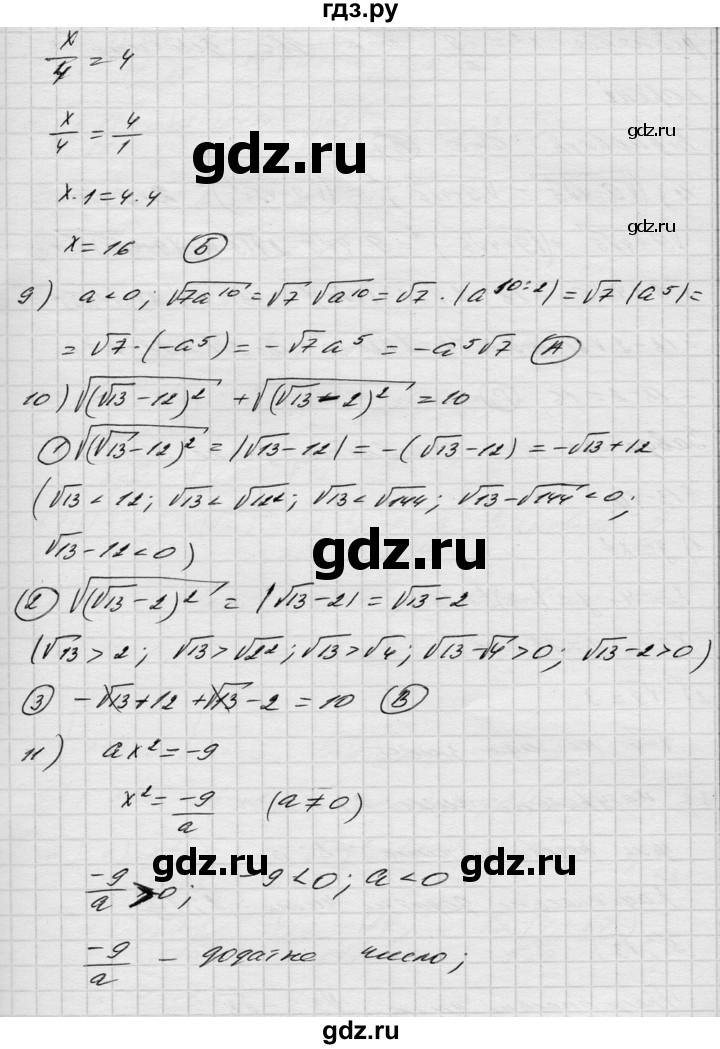 гдз.ру
x/4 = 4
x/4 = 4/1
gdz.ru
gdz.ru
x·1=4·4
x=16 Б
gdz.ru
9) a<0; √7a¹⁰ = √7 √a¹⁰ = √7 · |a¹⁰:²| = √7 |a⁵| =
= √7·(-a⁵) = -√7a⁵ = -a⁵√7 А
10) √(√13-12)² + √(√13-2)² = 10
1 √(√13-12)² = |√13-12| = -(√13-12) = -√13+12
(√13<12; √13<√12²; √13<√144; √13-√144<0;
√13-12<0)
gdz.ru
2 √(√13-2)² = |√13-2| = √13-2
(√13>2; √13>√2²; √13>√4; √13-√4>0; √13-2>0)
3 -√13+12+√13-2=10 В
11) ax²=-9
x²=-9/a (a≠0)
gdz.ru
gdz.ru
-9/a >0; -9<0; a<0
-9/a – додатне число;
gdz.ru